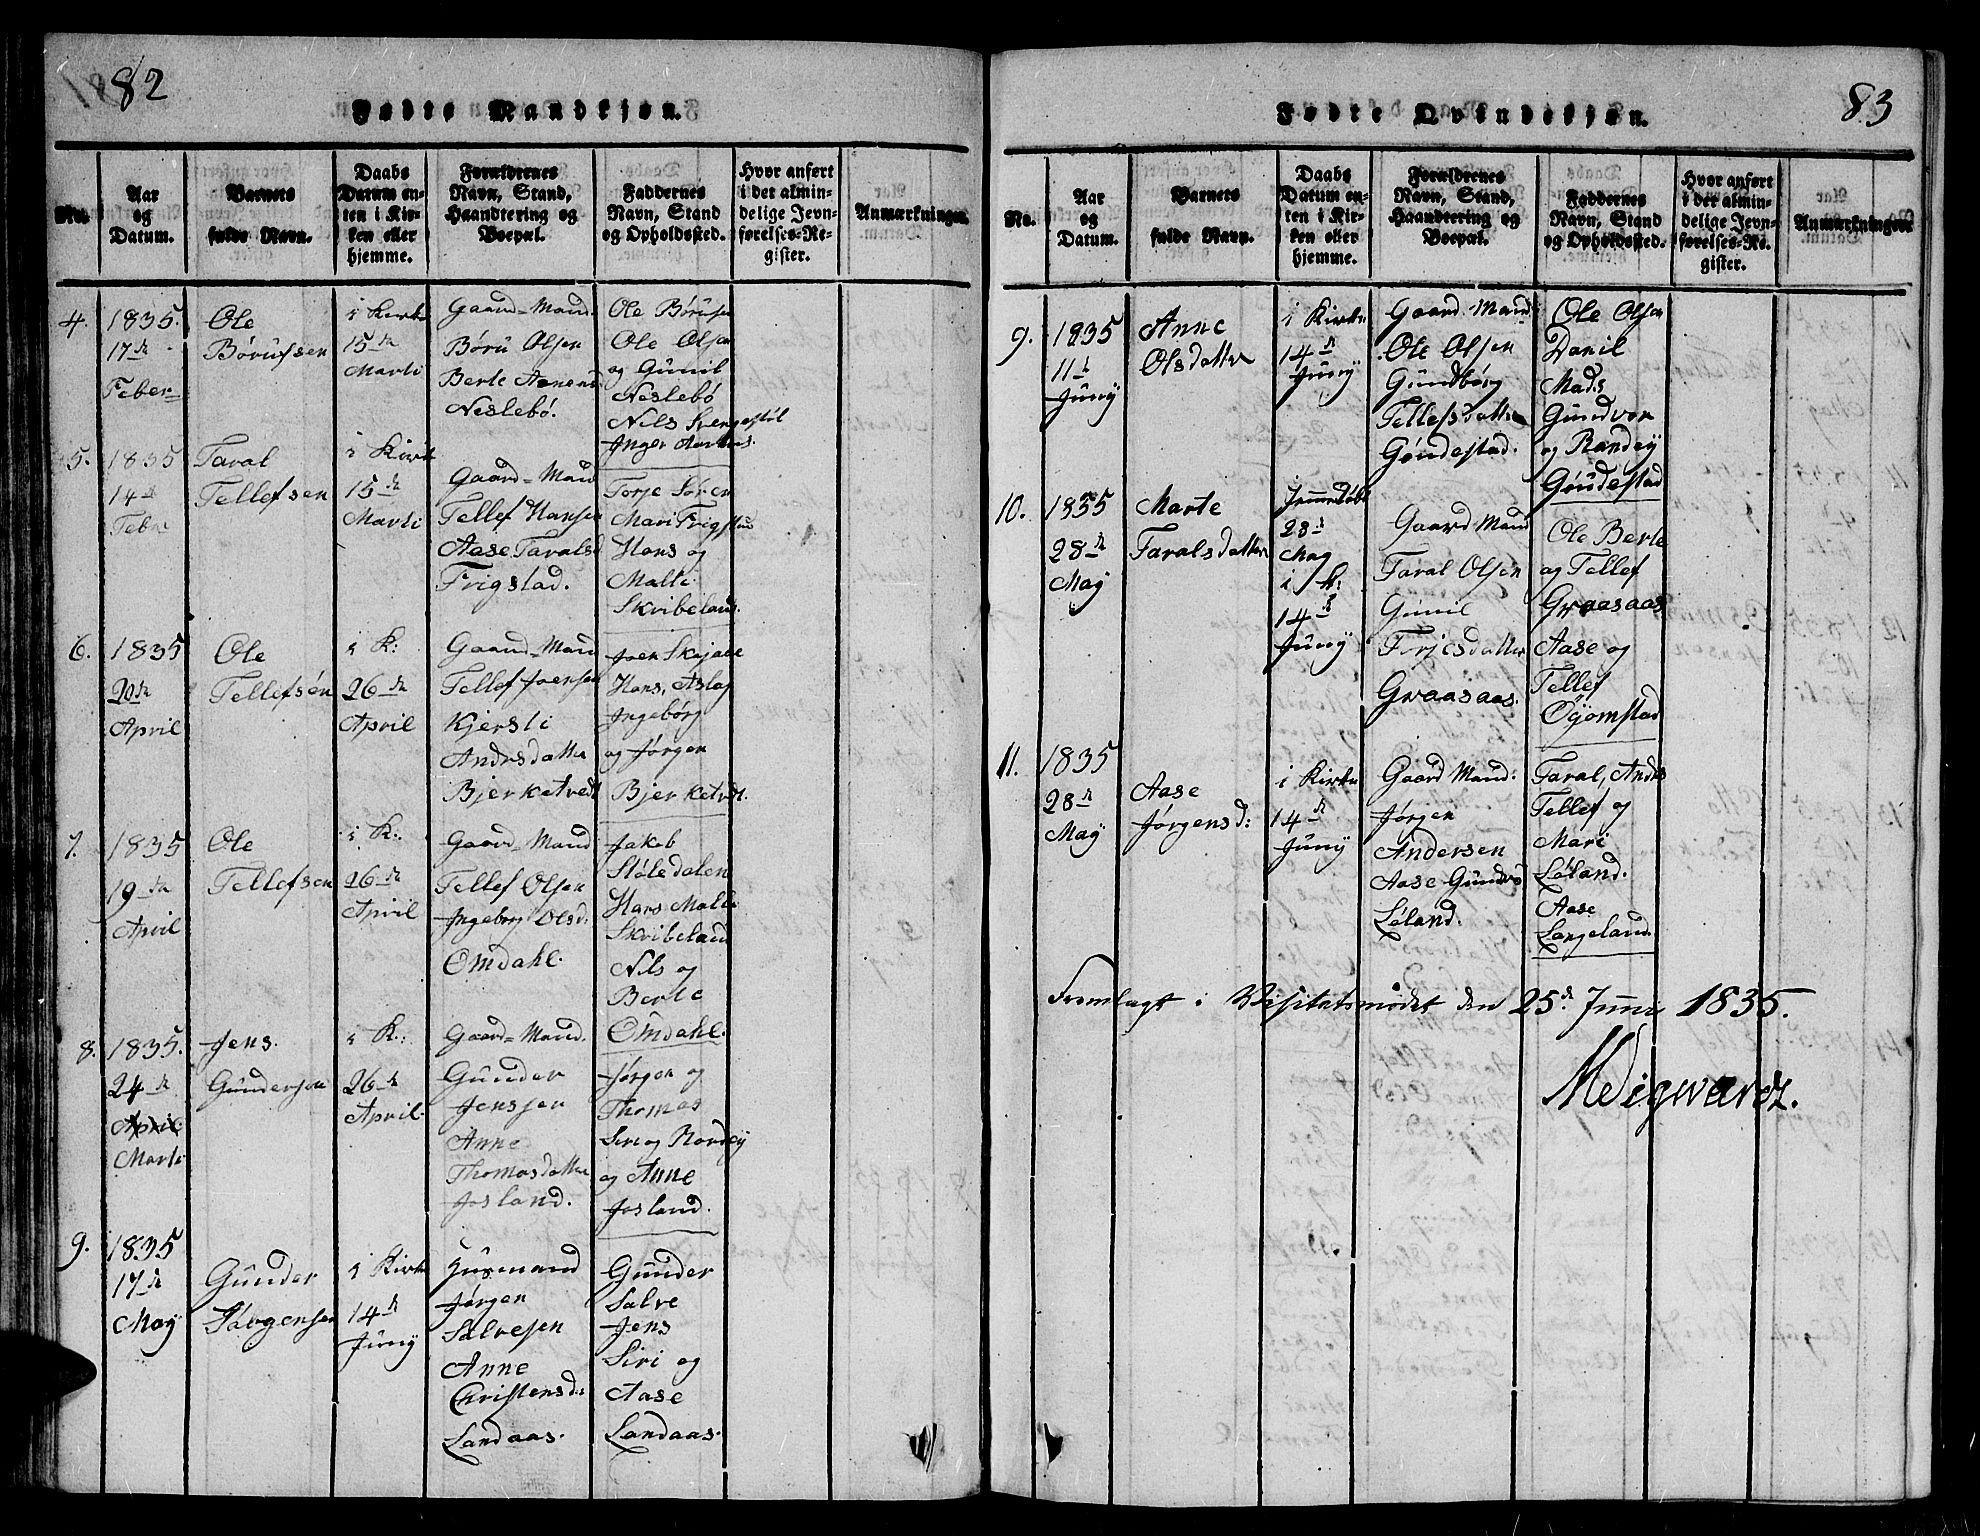 82
Fødte Mandkjøn.
No.
Aar og Datum.
Barnets fulde Navn.
Daabs Datum enten i Kirken eller hjemme.
Forældrenes Navn, Stand, Haandtering og Boepæl.
Faddernes Navn, Stand og Opholdssted.
Hvor anført i det almindelige Jevnførelses-Register.
Anmærkninger.
4.
1835.
17de
Feber
Ole
Børufsen
i Kirke
15de
Marti
Gaard-Mand
Børu Olsen
Berte Aanensd
Neslebø.
Ole Børufse
Ole Olsen
og Gunil
Neslebø
Nils
Inger
5.
1835
14de
Febr
Taral
Tellefsen
i Kirk
15de
Marti
Gaard-Mand
Tellef Hansen
Aase Taralsd
Frigstad.
Torje Søren
Mari Frigstad
Hans og
Malli
Skribeland.
6.
1835
20de
April
Ole
Tellefsen
i K:
26de
April
Gaard-Mand
Tellef Joensen
Kjersti
Andrsdatter
Bjerketvedt
Joen
Hans, Aslag
Ingebørg
og Jørgen
Bjerketvdt.
7.
1835
19de
April
Ole
Tellefsen
i K:
26de
April
Gaard-Mand
Tellef Olsen
Ingeborg Olsd.
Omdahl.
Jakob
Støledalen
Hans Malli
Skribeland
Nils og
Berte
Omdahl.
8.
1835.
24de
April
Marti
Jens.
Gundersen
i K:
26de
April.
Gaard-Mand.
Gunder
Jenssen
Anne
Thomasdatter
Josland.
Jørgen og
Thomas
Siri og Randey
og Anne
Josland.
9.
1835
17de
May
Gunder
Jørgensen
i Kirke
14de
Juny
Husmand
Jørgen
Salvesen
Anne
Christensd:
Landaas.
Gunder
Salve
Jens
Siri og
Aase
Landaas.
83
Fødte Qvindekjøn.
No.
Aar og Datum.
Barnets fulde Navn.
Daabs Datum enten i Kirken eller hjemme.
Forældrenes Navn, Stand, Haandtering og Boepæl.
Faddernes Navn, Stand og Opholdssted.
Hvor anført i det almindelige Jevnførelses-Register.
Anmærkninger.
9.
1835
11te
Juny
Anne
Olsdatter
i Kirke
14de
Juny
Gaard-Mand
Ole Olsen
Gundborg
Tellefsdatter
Gøndestad.
Ole Olsen
Danil
Mads
Gundvor
og Randey
Gøndestad
10.
1835
28de
May
Marte
Taralsdatter
28de
May
i K:
14de
Juny
Gaard Mand
Taral Olsen
Gunil
Torjesdatter
Graasaas.
Ole Berte
og Tellef
Graasaas
Aase og
Tellef
Øyomstad
11.
1835
28de
May
Aase
Jørgensd:
i Kirke
14de
Juny
Gaard Mand:
Jørgen
Andersen
Aase Gundvs
Løland.
Taral, Andrs
Tellef og
Mari
Løland.
Aase
Langeland.
Fremlagt i Visitatsmødet den 25de Juni 1835.